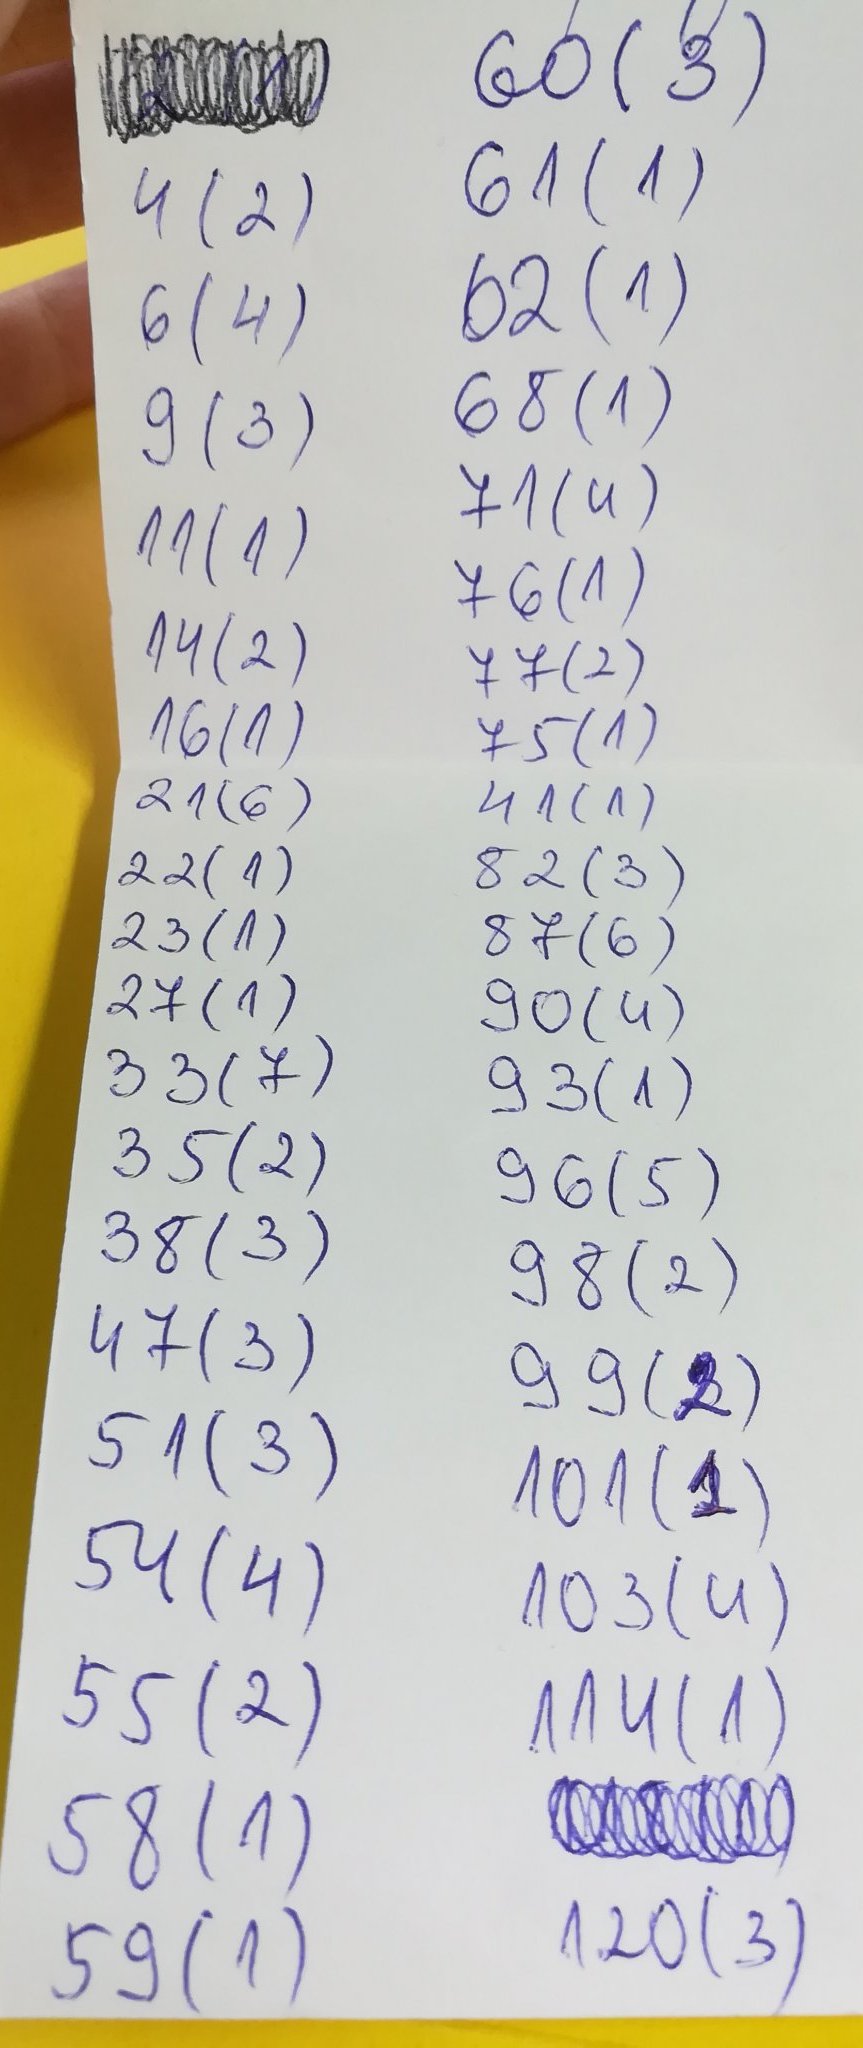 4(2)
6(4)
9(3)
11(1)
14(2)
16(1)
21(6)
22(1)
23(1)
27(1)
33(7)
35(2)
38(3)
47(3)
51(3)
54(4)
55(2)
58(1)
59(1)
60(3)
61(1)
62(1)
68(1)
71(4)
76(1)
77(2)
75(1)
41(1)
82(3)
87(6)
90(4)
93(1)
96(5)
98(2)
99(2)
101(1)
103(4)
114(1)
120(3)